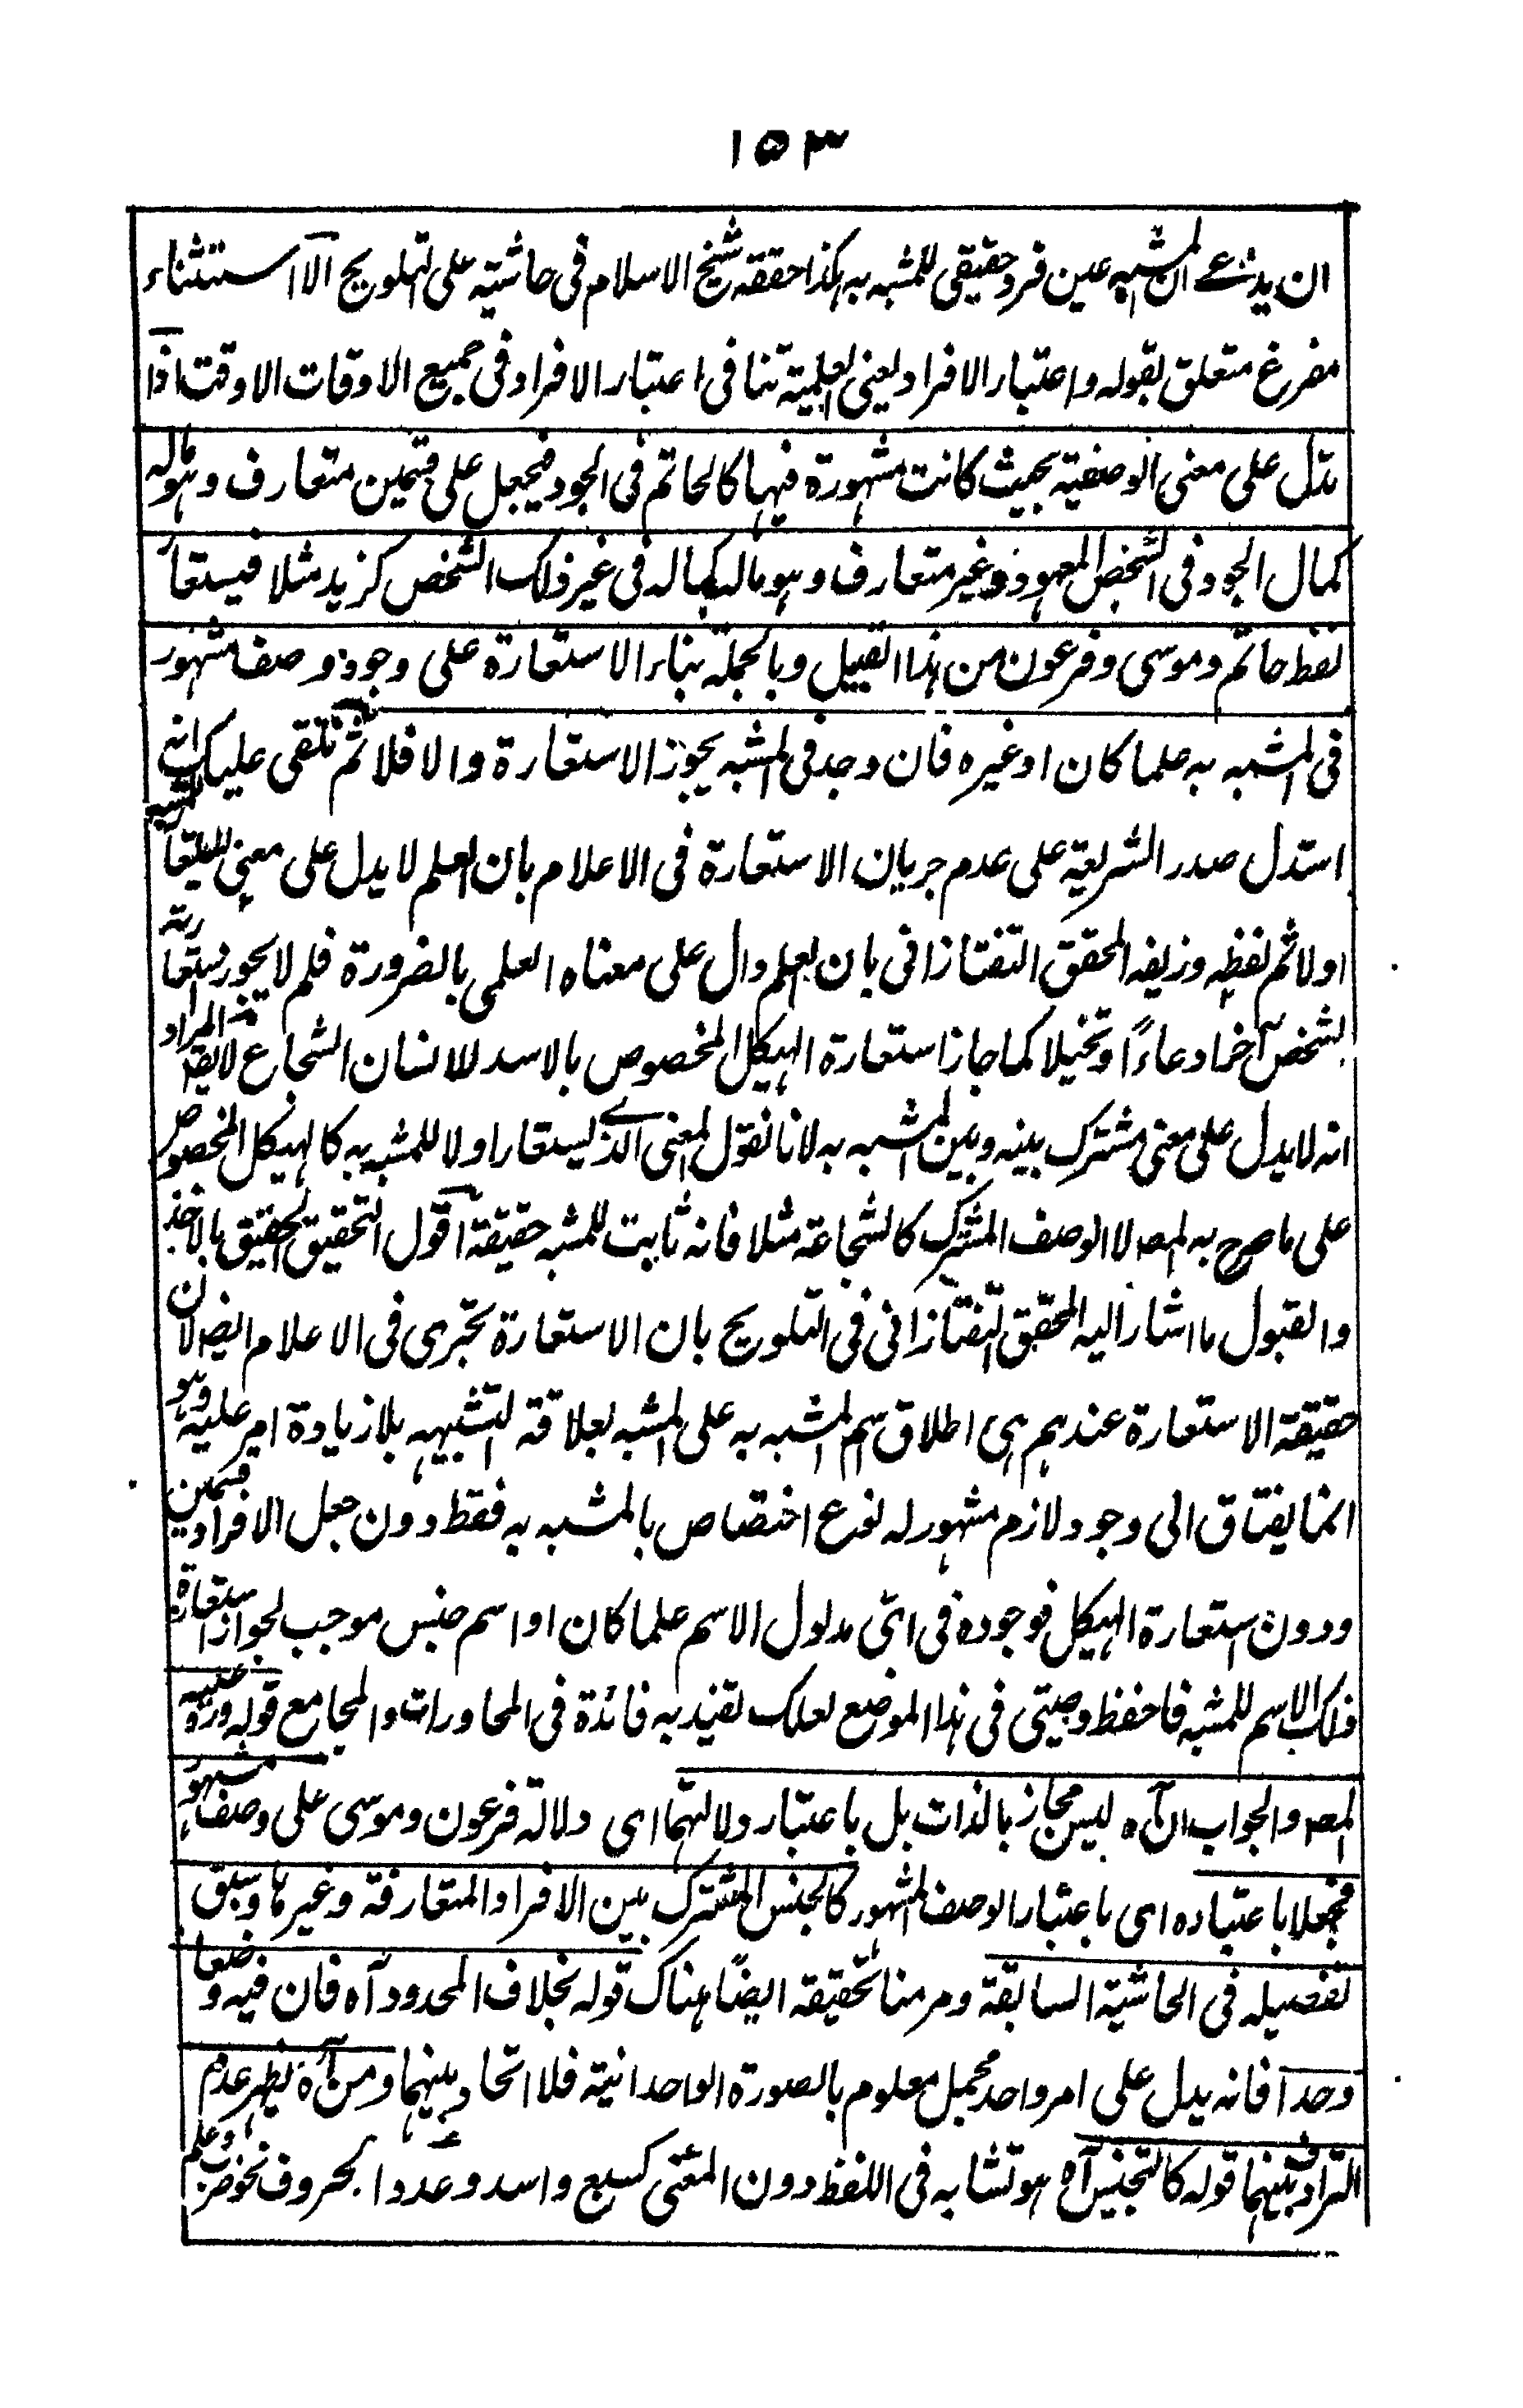 ١٥٣
ان يدعے ان المشبه عين فرد حقيقى للمشبه به هكذا حققه شيخ الاسلام فى حاشيته على التلويح الا استثناء
مفرغ متعلق بقوله واعتبار الافراد يعنى العلمية تنافى اعتبار الافراد فى جميع الاوقات الا وقت اذا
تدل على معنى الوصفية بحيث كانت مشهورة فيها كالحاتم فى الجود فيجعل على قسمين متعارف وهو ماله
كمال الجود فى الشخص المعهود وغير متعارف وهو ماله كماله فى غير ذلك الشخص كزيد مثلا فيستعار
لفظ حاتم وموسى وفرعون من هذا القبيل وبالجملة بناء الاستعارة على وجود وصف مشهور
فى المشبه به علما كان او غيره فان وجد فى المشبه يجوز الاستعارة والا فلا ثم نلقى عليك انه
استدل صدر الشريعة على عدم جريان الاستعارة فى الاعلام بان العلم لا يدل على معنى ليستعار
اولا ثم لفظه وزيفه المحقق التفتازانى بان العلم دال على معناه العلمى بالضرورة فلم لا يجوز استعارته
لشخص آخر ادعاءً وتخيلا كما جاز استعارة الهيكل المخصوص بالاسد للانسان الشجاع لا يقه المراد
انه لا يدل على معنى مشترك بينه وبين المشبه به لانا نقول المعنى الذے ليستعار اولا للمشبه به كالهيكل المخصوص
على ما صرح به المصه لا الوصف المشترك كالشجاعة مثلا فانه ثابت للمشبه حقيقة اقول التحقيق الحقيق بالاخذ
والقبول ما اشار اليه المحقق التفتازانى فى التلويح بان الاستعارة تجرى فى الاعلام ايضه لان
حقيقة الاستعارة عندهم هى اطلاق اسم المشبه به على المشبه لعلاقة التشبيه بلا زيادة امر عليه وهو
انما يفتاق الى وجود لازم مشهور له نوع اختصاص بالمشبه به فقط دون جعل الافراد قسمين
ودون استعارة الهيكل فوجوده فى اى مدلول الاسم علما كان او اسم جنس موجب لجواز استعارة
ذلك الاسم للمشبه فاحفظ وصيتى فى هذا الموضع لعلك تفيد به فائدة فى المحاورات والمجامع قوله ورد عليه
المصه والجواب ان آه ليس مجاز بالذات بل باعتبار دلالتهما اى دلالة فرعون وموسى على وصف مشهور
فجعلا باعتباره اى باعتبار الوصف المشهور كالجنس المشترك بين الافراد المتعارفة وغيرها وسبق
تفصيله فى الحاشية السابقة ومر منا تحقيقه ايضًا هناك قوله بخلاف المحدود آه فان فيه وضعا
وحدا فانه يدل على امر واحد مجمل معلوم بالصورة الواحدانية فلا اتحاد بينهما ومن آه يظهر عدم
الترادف بينهما قوله كالتجنيس آه هو تشابه فى اللفظ دون المعنى كسبع واسد وعددا بحروف نحو ضرب وعلم